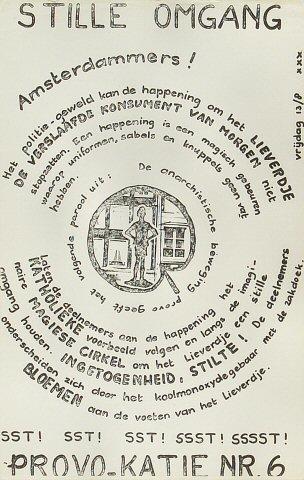 STILLE OMGANG
vrijdag 13/8 xxx
Amsterdammers!
Het politie-geweld kan de happening om het LIEVERDJE
DE VERSLAAFDE KONSUMENT VAN MORGEN niet
stopzetten. Een happening is een magisch gebeuren
waarop uniformen, sabels en knuppels geen vat
hebben.
De anarchistische beweging
provo geeft het volgende parool uit:
laten de deelnemers aan de happening het
KATHOLIEKE voorbeeld volgen en langs de imagi-
naire MAGIESE CIRKEL om het Lieverdje een stille
omgang houden. INGETOGENHEID, STILTE! De deelnemers
onderscheiden zich door het koolmonoxydegebaar met de zakdoek.
BLOEMEN aan de voeten van het Lieverdje.
SST! SST! SST! SSST! SSSST!
PROVO-KATIE NR. 6